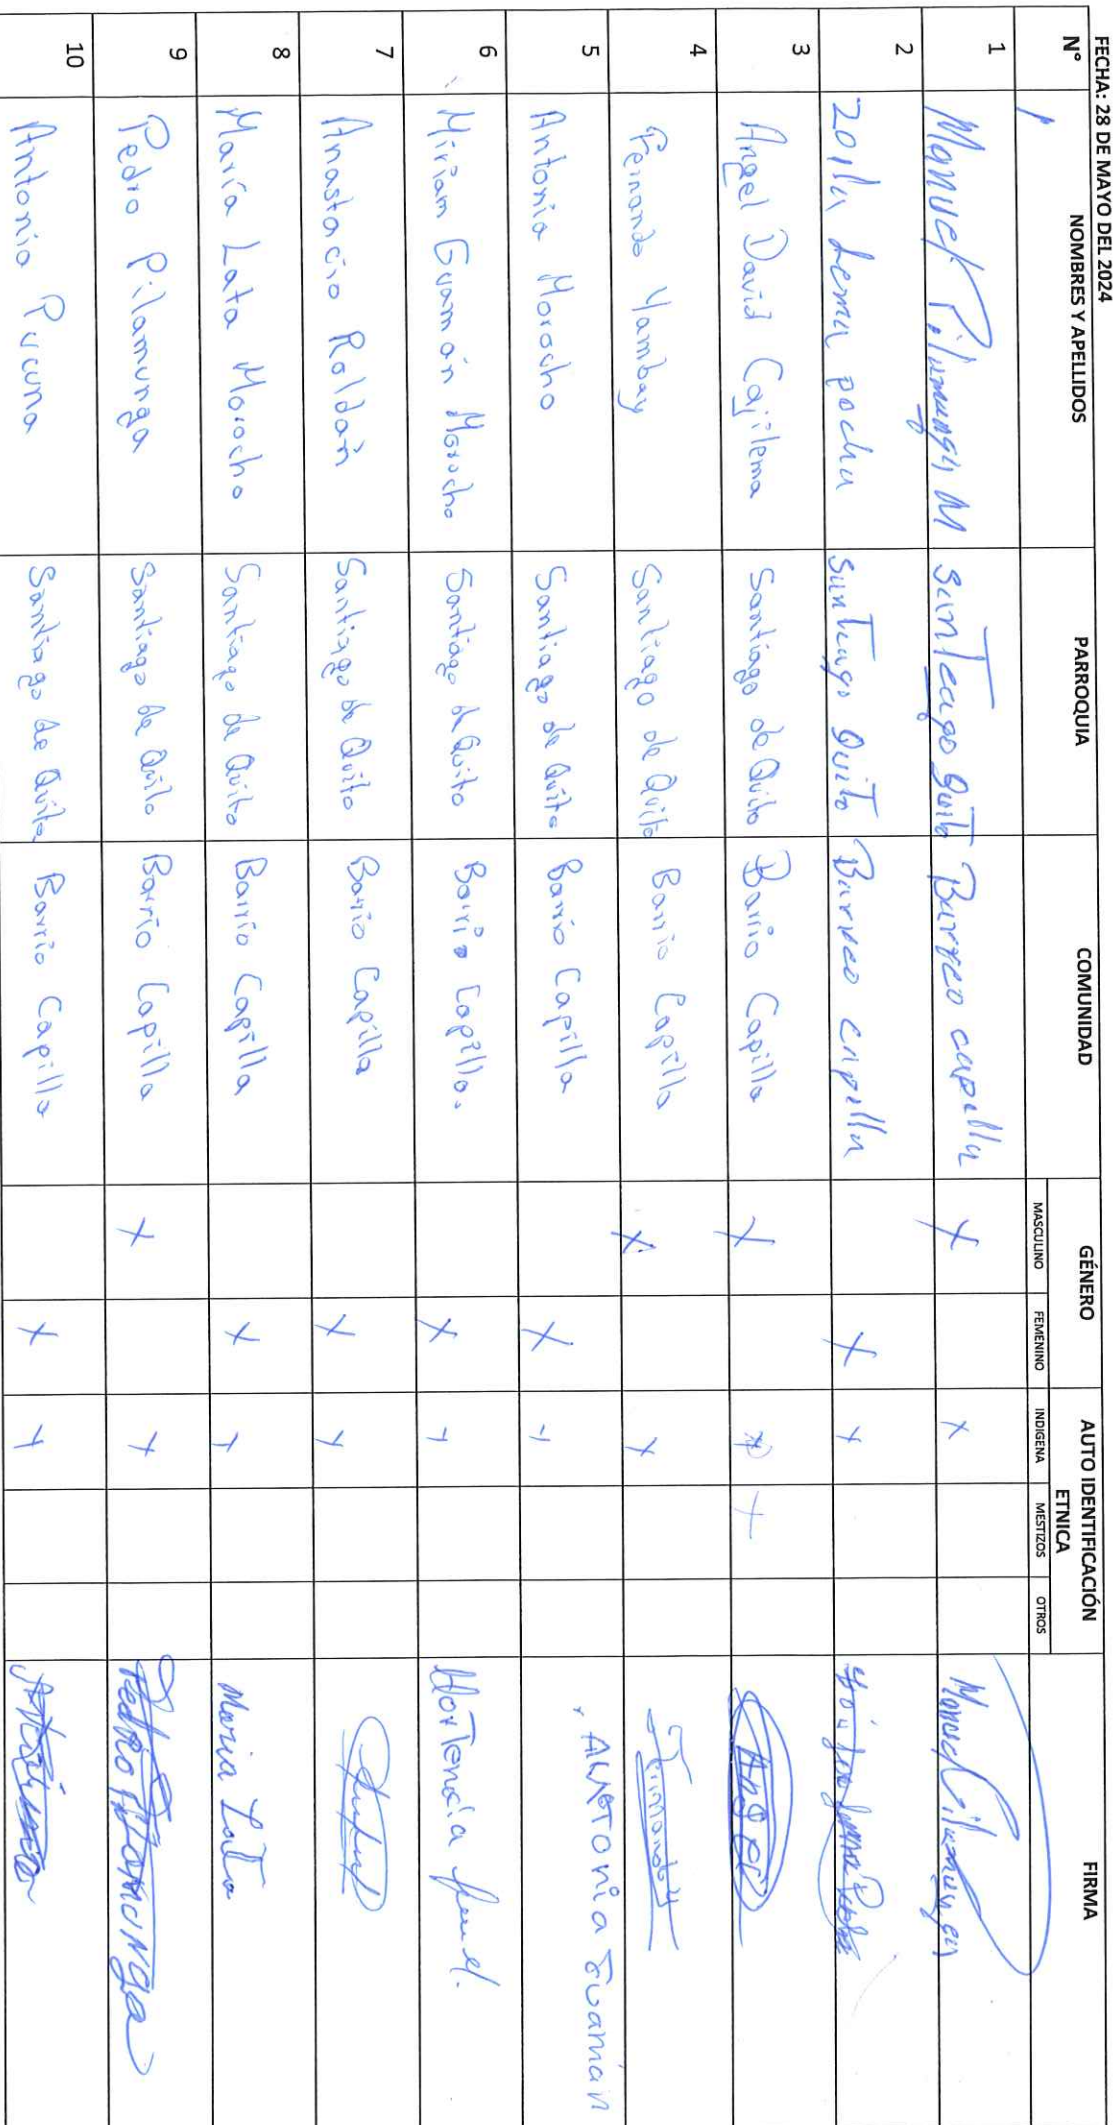 FECHA: 28 DE MAYO DEL 2024
N° NOMBRES Y APELLIDOS PARROQUIA COMUNIDAD GÉNERO AUTO IDENTIFICACIÓN ETNICA FIRMA
MASCULINO FEMENINO INDIGENA MESTIZOS OTROS
1 Manuel Pilamunga M Santeago Quito Barreo capella X X Manuel Pilamunga
2 Zoila Lema pocha Santiago Quito Barreo capilla X X
3 Angel David Cajilema Santiago de Quito Barrio Capilla X X X Angel
4 Fernando Yambay Santiago de Quito Barrio Capilla X X Fernando Y
5 Antonia Morocho Santiago de Quito Barrio Capilla X X ANTONIA Guamán
6 Miriam Guamán Morocho Santiago de Quito Barrio Capilla. X X Hortencia
7 Anastacio Roldan Santiago de Quito Barrio Capilla X X
8 María Lata Morocho Santiago de Quito Barrio Capilla X X Maria Lata
9 Pedro Pilamunga Santiago de Quito Barrio Capilla X X Pedro Pilamunga
10 Antonio Pucuna Santiago de Quito Barrio Capilla X X